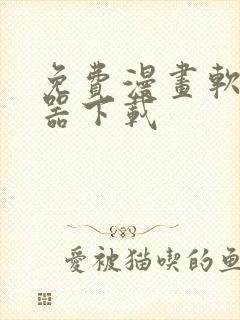 免費漫畫軟
器下載
愛被猫喫的鱼